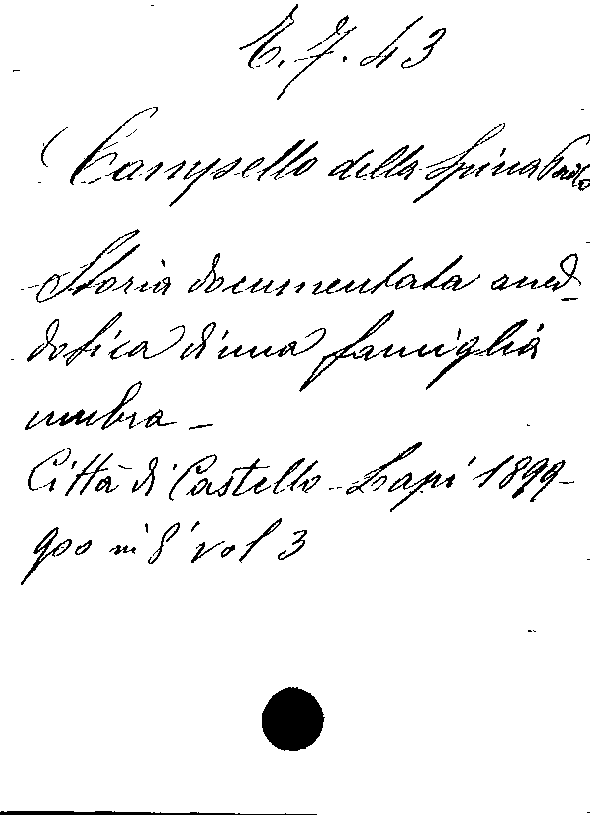 E.7.43
Campello della Spina Paolo
Storia documentata aned-
dotica di una famiglia
umbra -
Città di Castello - Lapi 1899-
900 in 8° vol 3